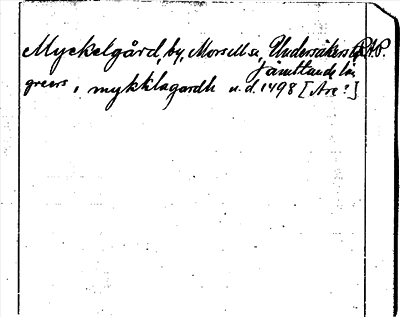 Myckelgård, by, Mörsills sn, Undersåkers tg P.H.P.
Jämtlands län
greers, mykklagardh u.d. 1498 [Åre?]